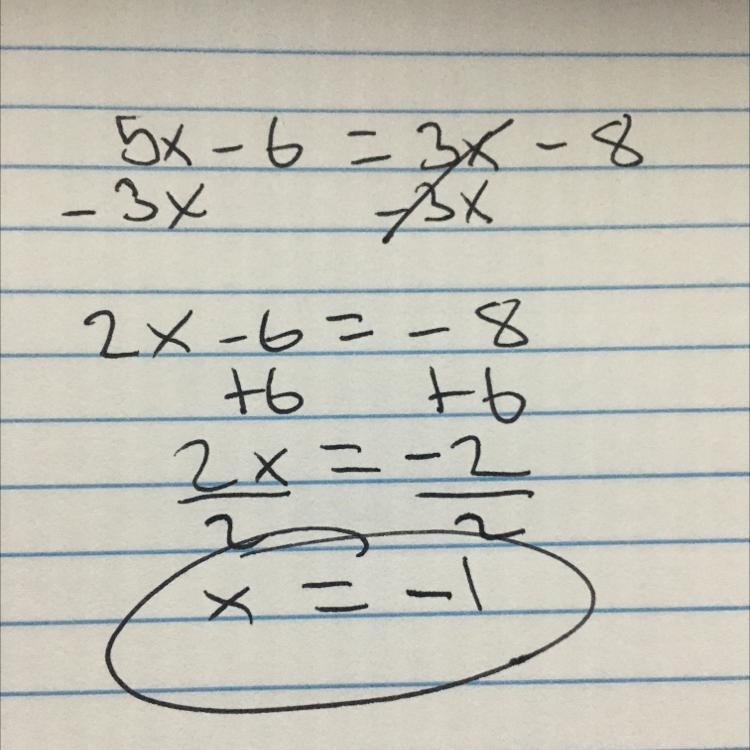 5x - 6 = 3x - 8
- 3x - 3x
2x - 6 = - 8
+6 +6
2x = -2
2 2
x = -1